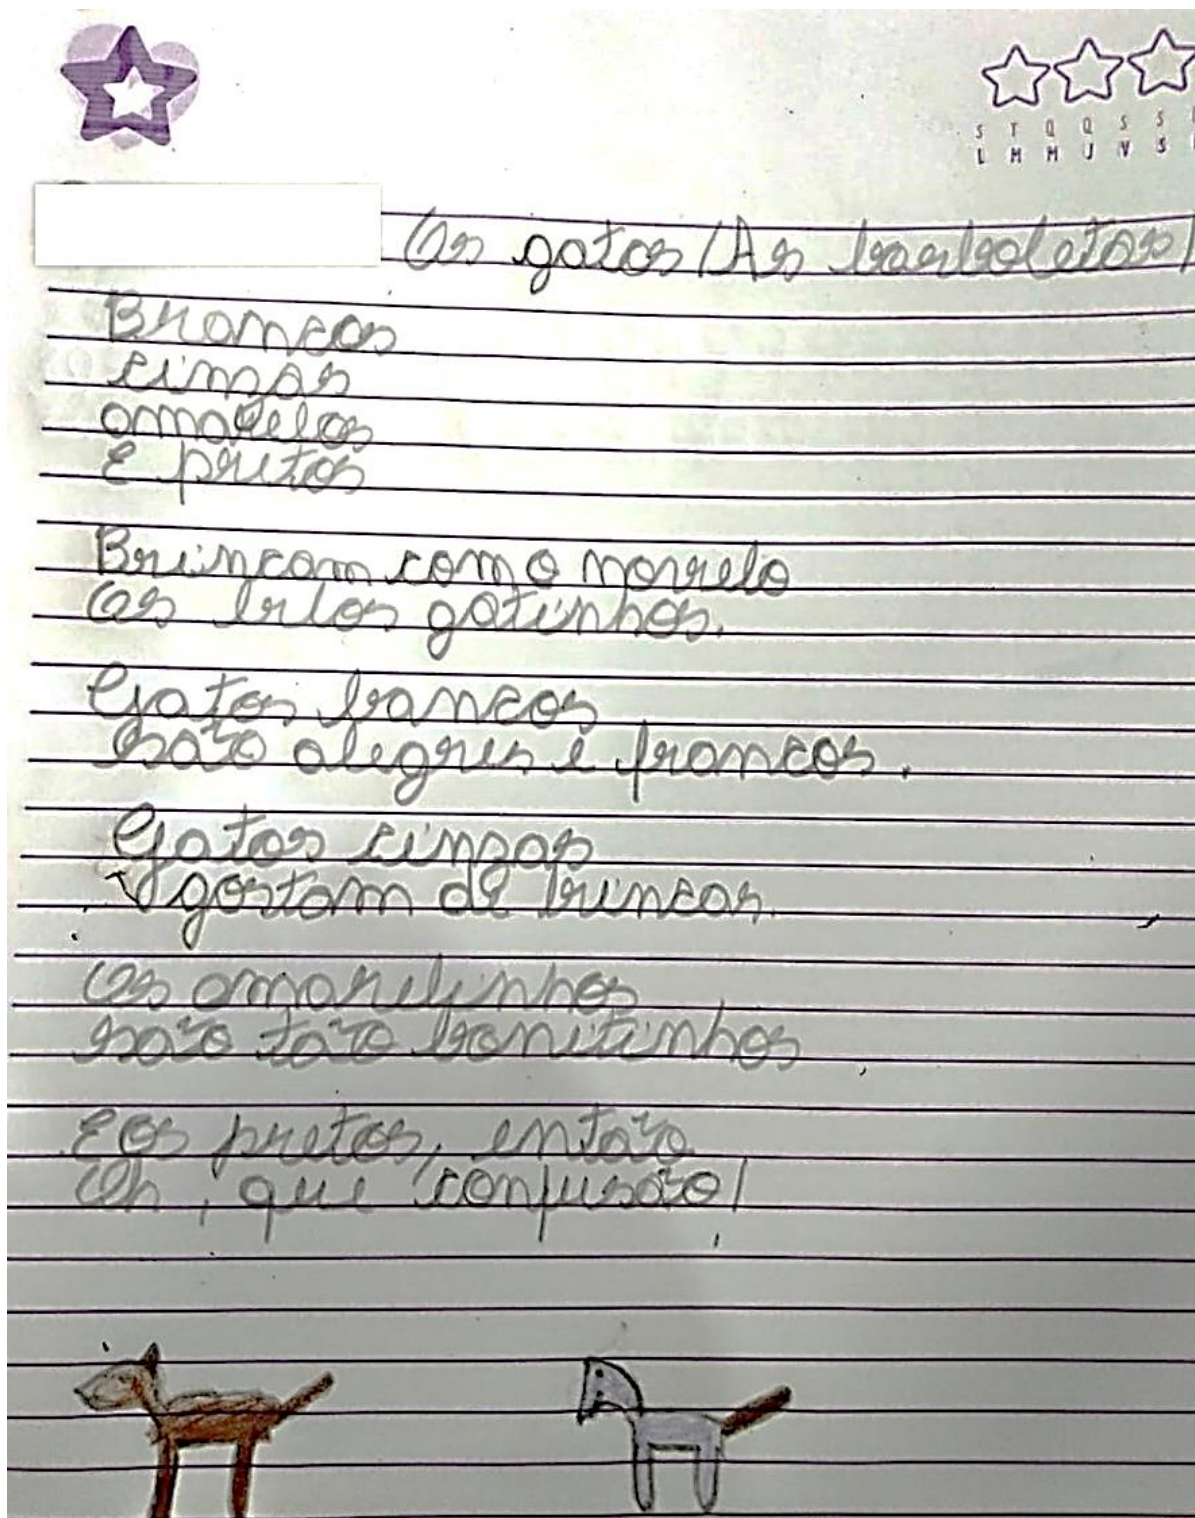 S T Q Q S S
L M M J V S
Os gatos (As borboletas)
Brancos
cinzas
amarelos
E pretos
Brincam com o novelo
Os belos gatinhos.
Gatos brancos
são alegres e francos.
Gatos cinzas
gostam de brincar.
Os amarelinhos
são tão bonitinhos
E os pretos, então
Oh, que confusão!